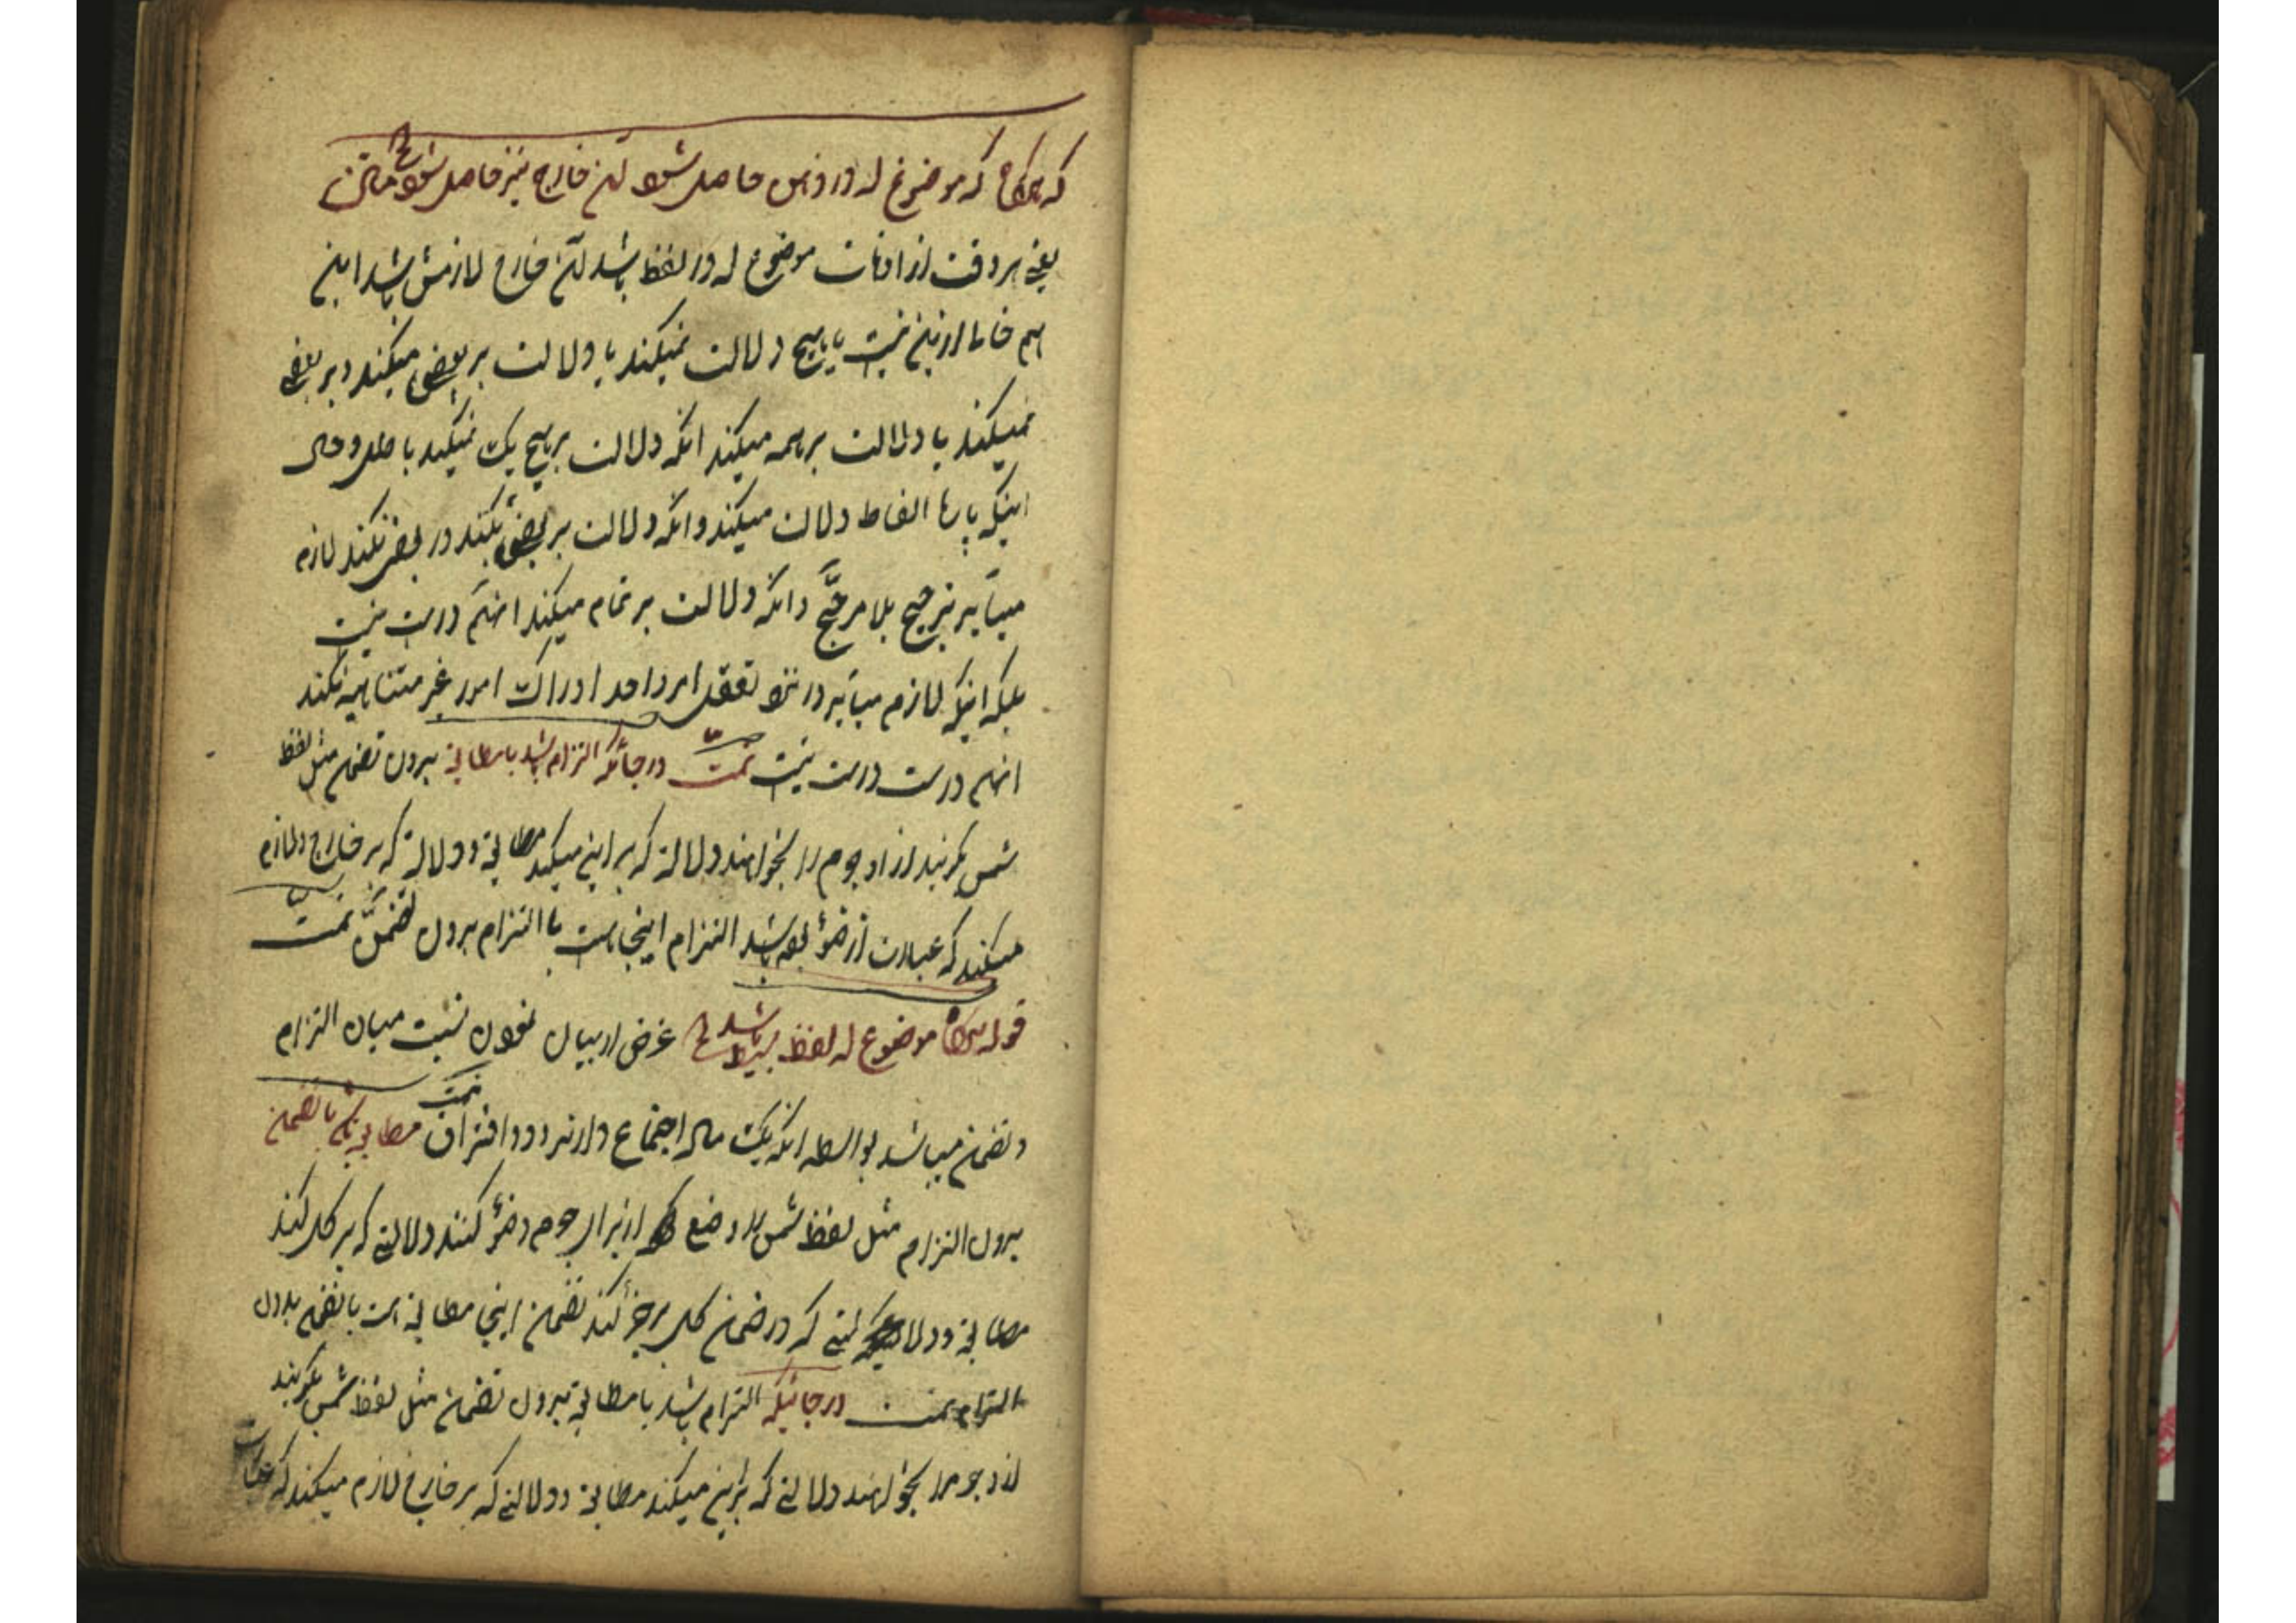 که هرگاه که موضوع له در ذهن حاصل شود آن خارج نیز حاصل شود الخ
یعنی هر وقت از اوقات موضوع له در لفظ باشد آن خارج لازمش باشد این
هم خالی ازین نیست یا بهیچ دلالت نمیکند یا دلالت بر بعضی میکند و بر بعضی
نمیکند یا دلالت بر همه میکند آنکه دلالت بر هیچ یک نمیکند باطل و حال
اینکه الفاظ دلالت میکند و آنکه دلالت بر بعضی بکند و بر بعضی نکند لازم
میآید ترجیح بلا مرجح و آنکه دلالت بر تمام میکند آنهم درست نیست
بلکه اینکه لازم میآید در نزد تعقل امر واحد ادراک امور غیر متناهیه نکند
آنهم درست درست نیست تمت در جائیکه التزام باشد با مطابقه بدون تضمن مثل لفظ
شمس بگویند از او جرم را بخواهند دلالة که بر این میکند مطابقة و دلالة که بر خارج لازم
میکند که عبارت از ضوء بوده باشد التزام اینجا است با التزام بدون تضمن تمت
قوله هرگاه موضوع له لفظ بسیط باشد الخ غرض از بیان نمودن نسبت میان التزام
و تضمن میباشد بواسطه آنکه یک ماده اجتماع دارند و دو افتراق تمت مطابقه باشد با تضمن
بدون التزام مثل لفظ شمس را وضع از برای جرم و ضوء کنند دلالتی که بر کل کند
مطابقة و دلالتی که در ضمن کل بر جزء کند تضمن اینجا مطابقة است با تضمن بدون
التزام تمت در جائیکه التزام باشد با مطابقة بدون تضمن مثل لفظ شمس بگویند
از او جرم را بخواهند دلالتی که بر این میکند مطابقة و دلالتی که بر خارج لازم میکند که عبارت